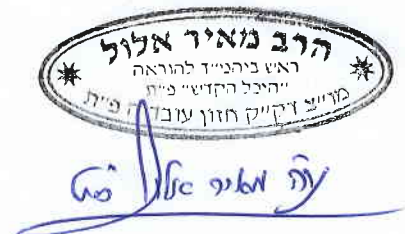 הרב מאיר אלול
ראש ביהמ״ד להוראה
״היכל הקדש״ פ״ת
מו״צ דקי״ק חזון עובדיה פ״ת
מאיר אלול